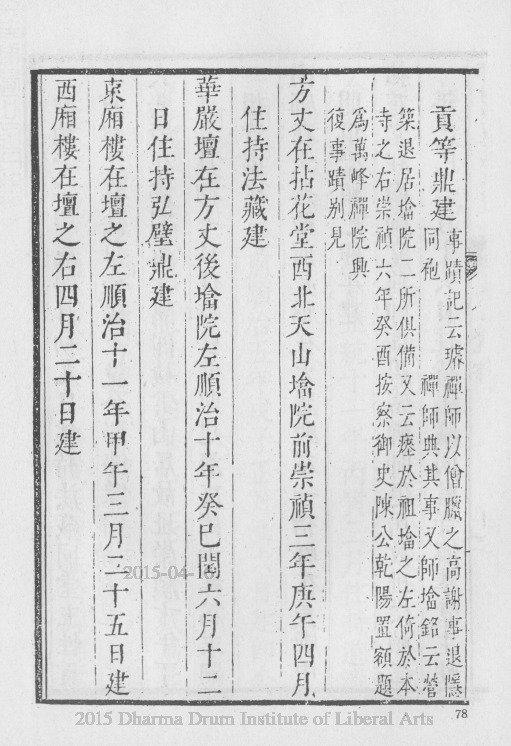 貢等鼎建
事蹟記云璩禪師以僧臘之高謝事退隱
同袍 禪師典其事又師墖銘云營
築退居墖院二所俱備又云瘞於祖墖之左倚於本
寺之右崇禎六年癸酉按察御史陳公乾陽置額題
爲萬峰禪院興
復事蹟别見
方丈在拈花堂西北天山墖院前崇禎三年庚午四月
住持法藏建
華嚴壇在方丈後墖院左順治十年癸巳閏六月十二
日住持弘璧鼎建
東廂樓在壇之左順治十一年甲午三月二十五日建
西廂樓在壇之右四月二十日建
2015-04-16
78
2015 Dharma Drum Institute of Liberal Arts